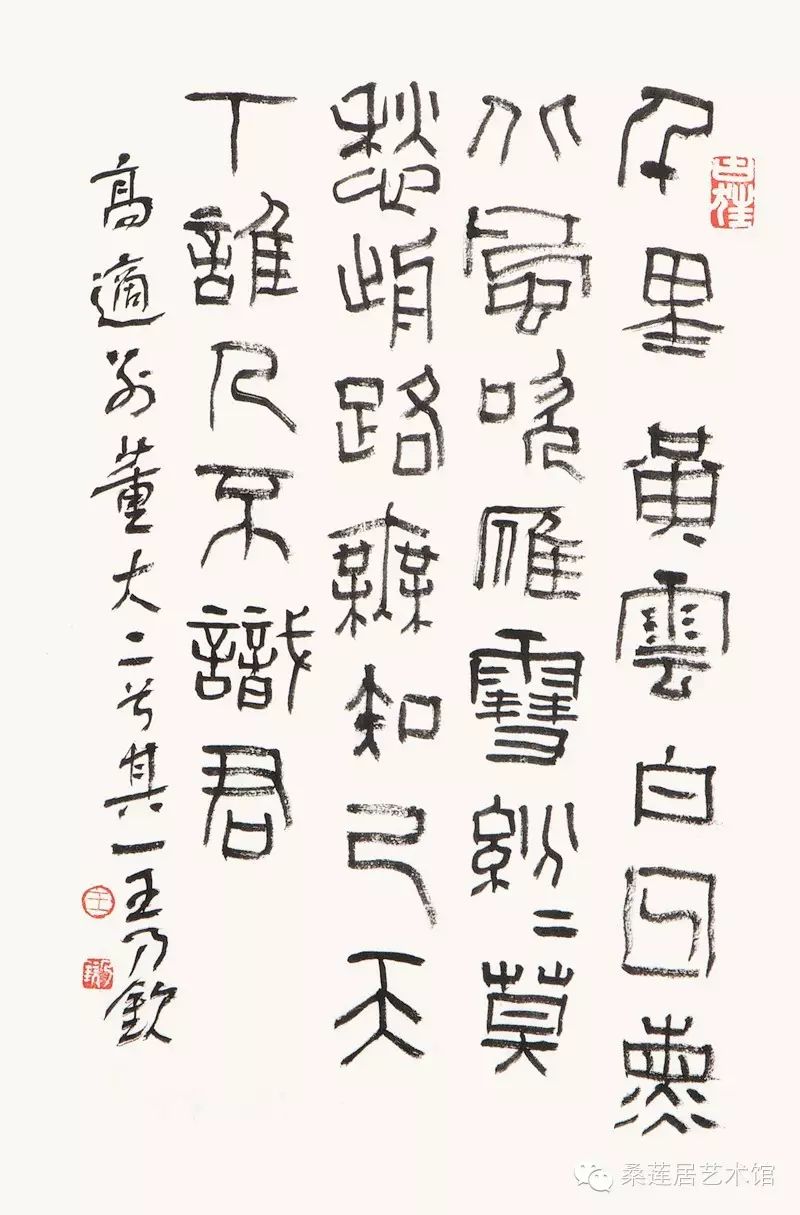 千里黃雲白日熏
北風吹雁雪紛〻莫
愁前路無知己天
下誰人不識君
高適別董大二首其一王乃欽
王
桑莲居艺术馆